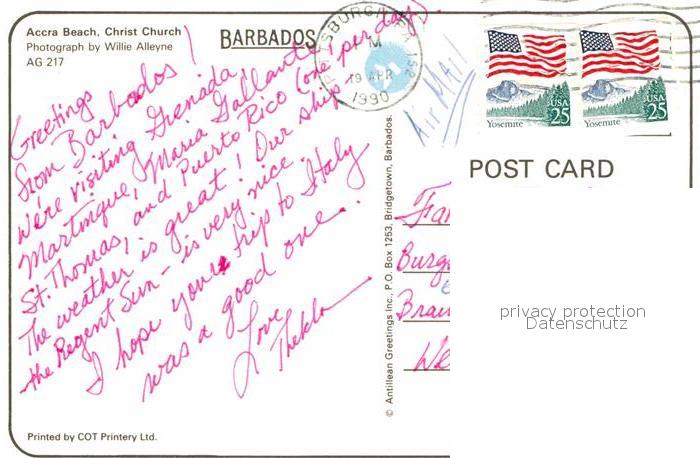 Accra Beach, Christ Church
Photograph by Willie Alleyne
AG 217
BARBADOS
Greetings
from Barbados!
We're visiting Grenada,
Martinque, Maria Gallante
St. Thomas, and Puerto Rico (one per day).
The weather is great! Our ship
the Regent Sun - is very nice.
I hope your trip to Italy
was a good one.
Love
Thekla
Printed by COT Printery Ltd.
© Antillean Greetings Inc., P.O. Box 1253, Bridgetown, Barbados.
PM
19 APR
1990
152
Air Mail
Yosemite
USA
25
Yosemite
USA
25
POST CARD
privacy protection
Datenschutz